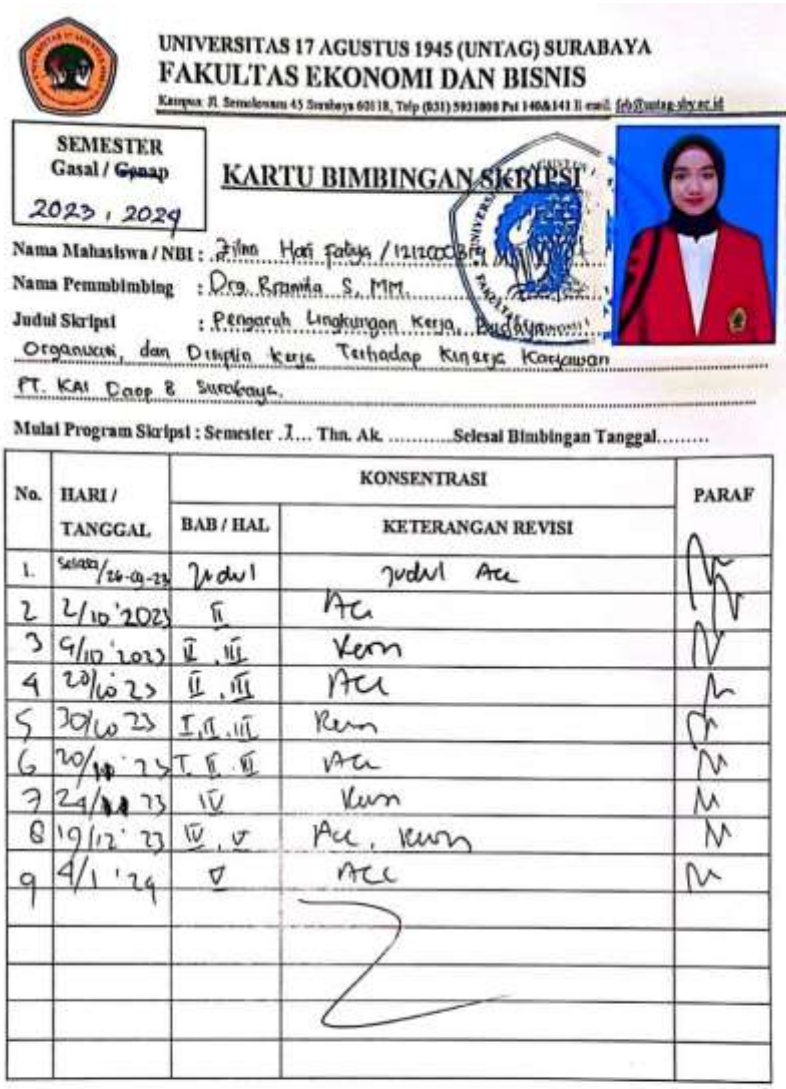 UNIVERSITAS 17 AGUSTUS 1945 (UNTAG) SURABAYA
FAKULTAS EKONOMI DAN BISNIS
Kampus: Jl. Semolowaru 45 Surabaya 60118, Telp (031) 5931800 Pst 140&141 E-mail: feb@untag-sby.ac.id
SEMESTER
Gasal / Genap
2023 / 2024
KARTU BIMBINGAN SKRIPSI
Nama Mahasiswa / NBI : Hari /
Nama Pemmbimbing : Dra. S, MM.
Judul Skripsi : Pengaruh Lingkungan Kerja, Budaya
Organisasi, dan Disiplin Kerja Terhadap Kinerja Karyawan
PT. KAI Daop 8 Surabaya.
Mulai Program Skripsi : Semester 7 Thn. Ak. ............ Selesai Bimbingan Tanggal.........
No. HARI / TANGGAL KONSENTRASI PARAF
BAB / HAL KETERANGAN REVISI
1. Selasa/26-09-23 Judul Judul Acc
2 2/10 '2023 II Acc
3 9/10 '2023 II, III
4 20/10 23 II, III Acc
5 30/10 23 I, II, III
6 20/ '23 I. II. III Acc
7 24/ 23 IV
8 19/12 '23 IV, V Acc,
9 4/1 '24 V Acc